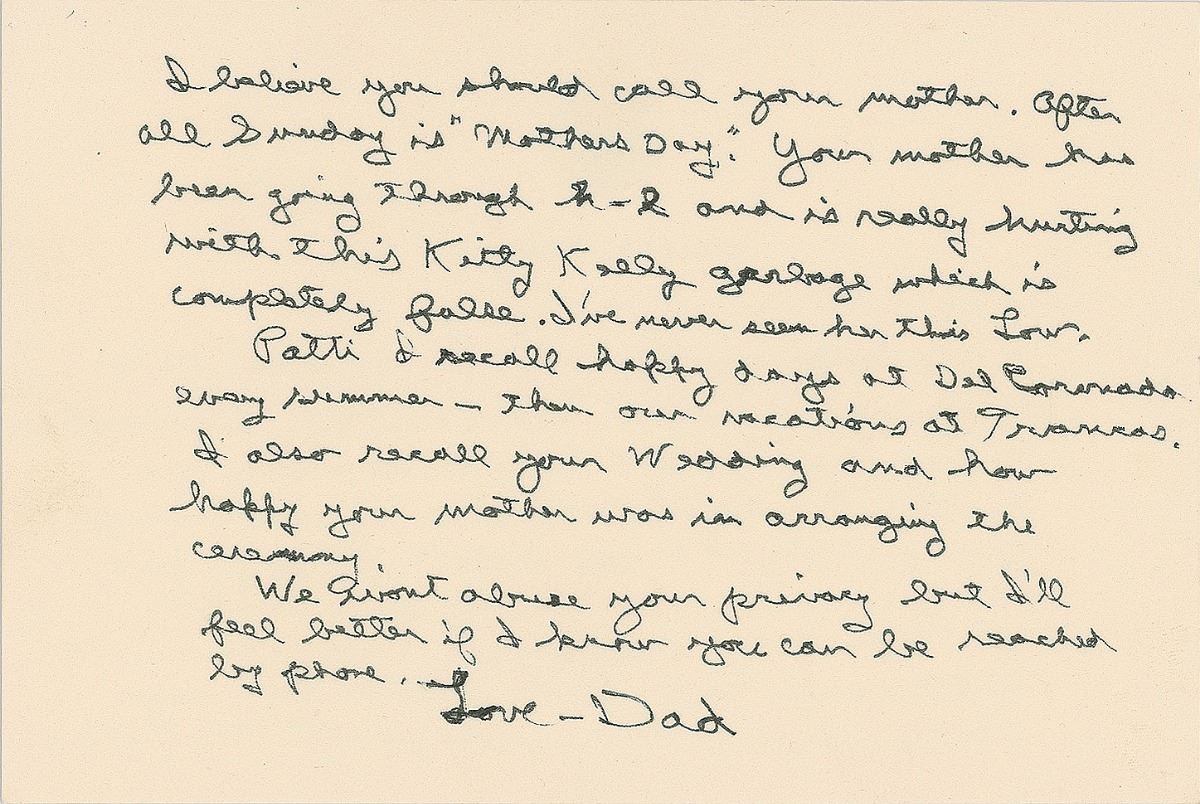 I believe you should call your mother. After
all Sunday is "Mothers Day." Your mother has
been going through h-l and is really hurting
with this Kitty Kelly garbage which is
completely false. I've never seen her this Low.
Patti I recall happy days at Del Coronado
every summer – then our vacations at Trancas.
I also recall your Wedding and how
happy your mother was in arranging the
ceremony
We won't abuse your privacy but I'll
feel better if I know you can be reached
by phone.
Love – Dad